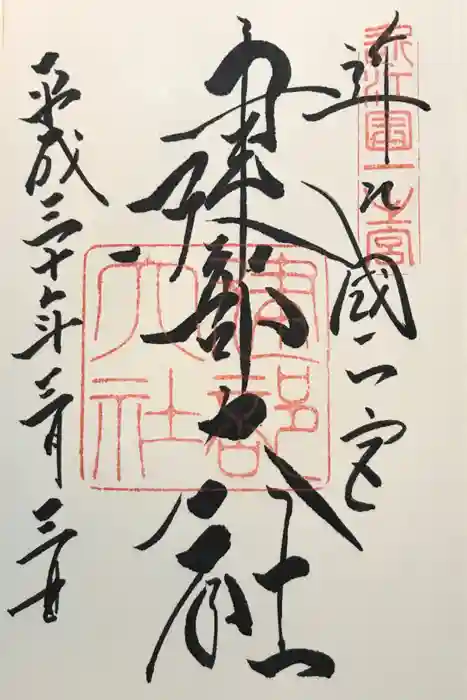 近江國一宮
近江國一之宮
建部大社
建部大社
平成三十年三月三日